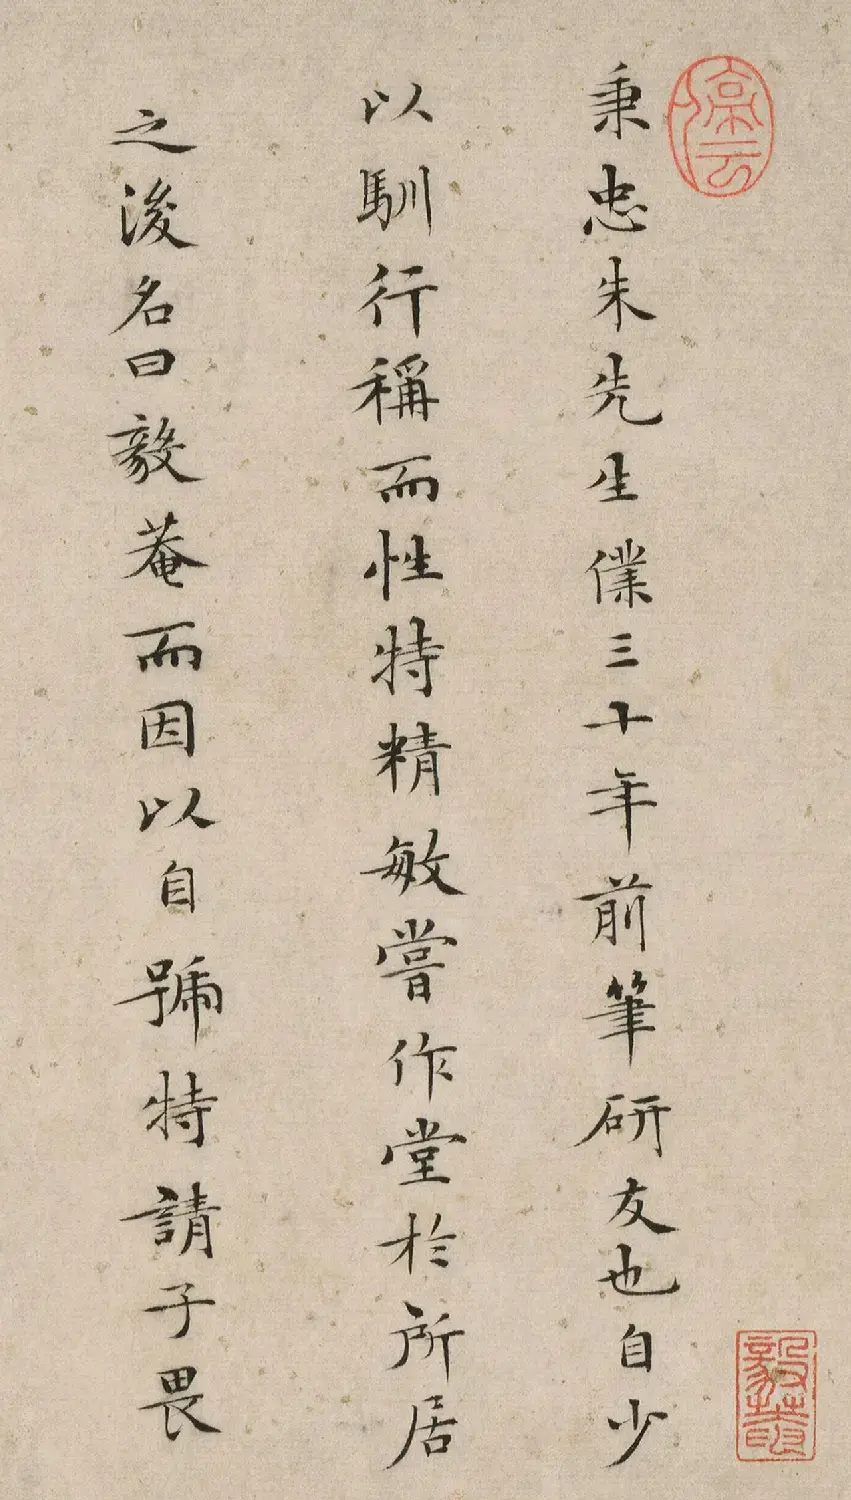 秉忠朱先生僕三十年前筆研友也自少
以馴行稱而性特精敏嘗作堂於所居
之後名曰毅菴而因以自號特請子畏
停云